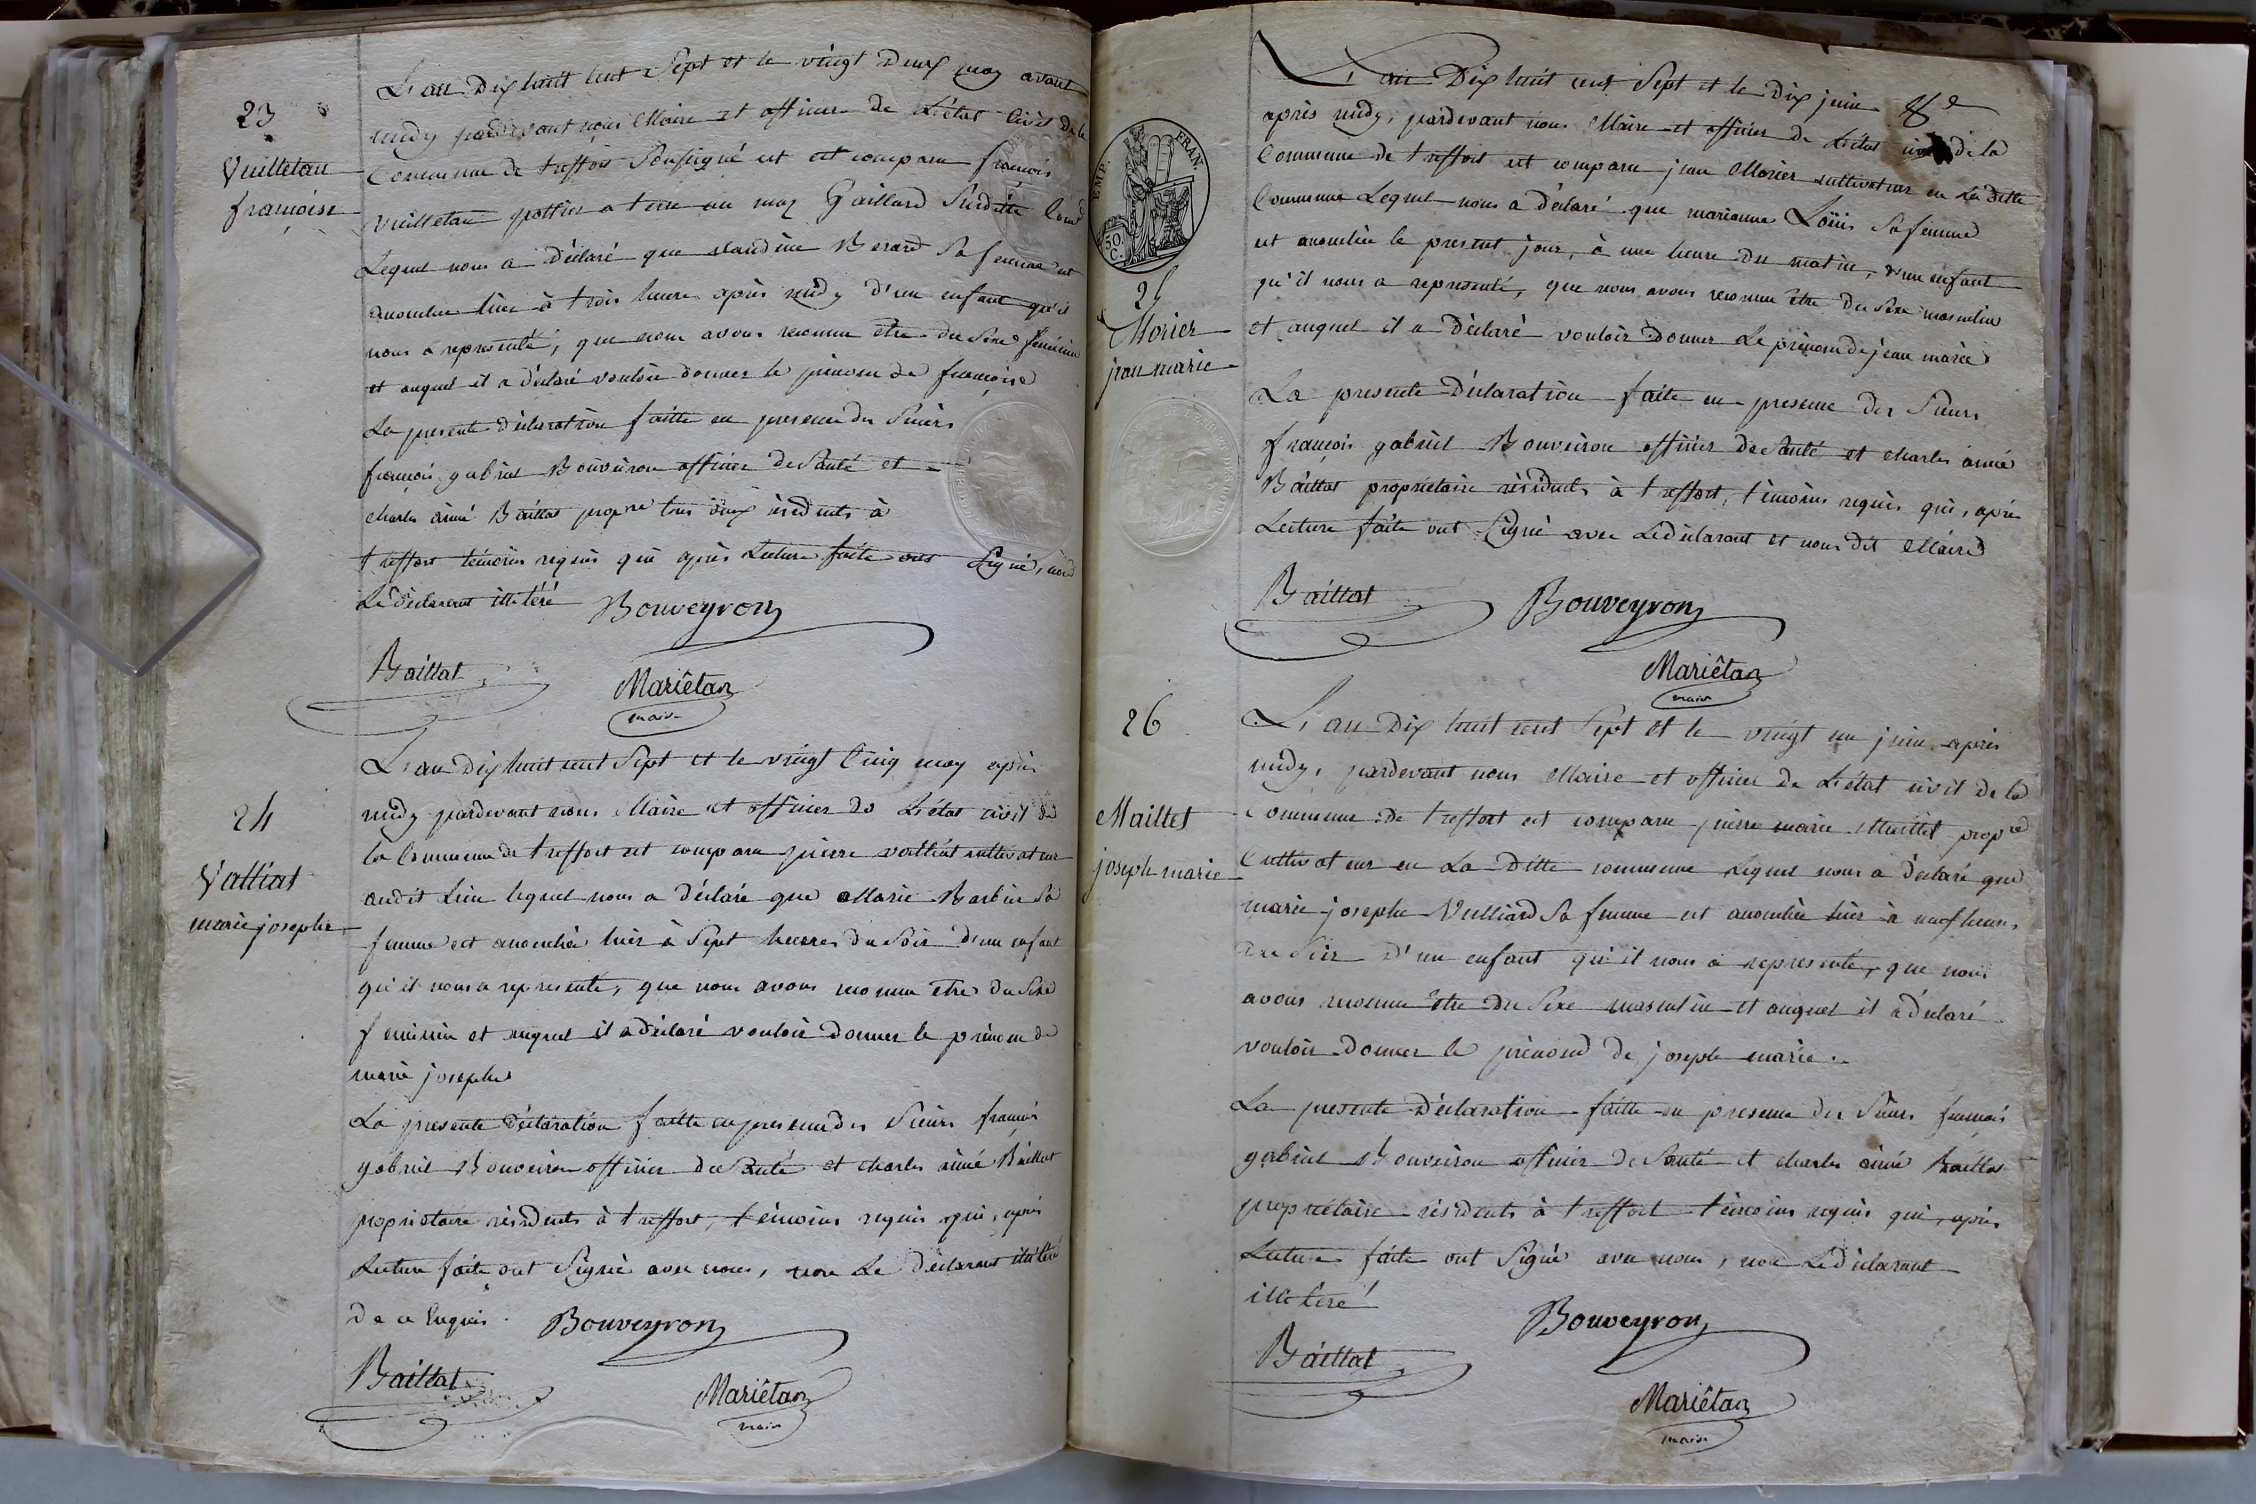 23
Vuilletan
françoise
L'an Dix huit cent Sept et le vingt Deux may avant
midy pardevant nous Maire et officier de L'état Civil de la
Commune de treffort Soussigné est et comparu françois
vuilletan gottier a terre au maz Gaillard Susditte Comne
Lequel nous a déclaré que claudine Berard Sa femme est
accouchée hier à trois heure après midy d'un enfant qu'il
nous a representé, que nous avons reconnu être du Sexe féminin
et auquel il a déclaré vouloir donner le prénom de françoise
La presente déclaration faitte en presence des Sieurs
françois gabriel Bouveiron officier de Santé et
charles aimé Baillat propre tous deux résidents à
treffort témoins requis qui après Lecture faite ont Signé, non
Le déclarant illitéré
Bouveyron
Baillat
Mariêtan
maire
24
Valliat
marie josephe
L'an Dix huit cent Sept et le vingt Cinq may après
midy pardevant nous Maire et officier de L'état civil de
la Commune de treffort est comparu pierre valliat cultivateur
audit Lieu lequel nous a déclaré que Marie Barbin Sa
femme est accouchée hier à Sept heures du Soir d'un enfant
qu'il nous a representé, que nous avons reconnu être du Sexe
feminin et auquel il a déclaré vouloir donner le prénom de
marie josephe
La presente déclaration faitte en presence des Sieurs françois
gabriel Bouveiron officier de Santé et charles aimé Baillat
propriétaire résidents à treffort, témoins requis qui, après
Lecture faite ont Signé avec nous, non Le déclarant illitéré
De ce Enquis.
Bouveyron
Baillat
Mariêtan
maire
EMP. FRAN.
50. C.
25
Morier
jean marie
L'an Dix huit cent Sept et le Dix juin
après midy, pardevant nous Maire et officier de L'état civil de la
Commune de treffort est comparu jean Morier cultivateur en La ditte
Commune Lequel nous a déclaré que marianne Loüis Sa femme
est accouchée le present jour, à une heure du matin, d'une enfant
qu'il nous a representé, que nous avons reconnu être du Sexe masculin
et auquel il a déclaré vouloir donner Le prénom de jean marie
La presente Déclaration faite en presence des Sieurs
françois gabriel Bouveiron officier de Santé et charles aimé
Baillat propriétaire résidents à treffort, témoins requis qui, après
Lecture faite ont Signé avec Le déclarant et nous dit Maire
Baillat
Bouveyron
Mariêtan
maire
26
Maillet
joseph marie
L'an Dix huit cent Sept et le vingt un juin après
midy, pardevant nous Maire et officier de L'état civil de la
Commune de treffort est comparu pierre marie Maillet propre
Cultivateur en La Ditte commune Lequel nous a déclaré que
marie josephe Vulliard Sa femme est accouchée hier à neuf heures
du Soir d'un enfant qu'il nous a representé, que nous
avons reconnu être du Sexe masculin et auquel il a déclaré
vouloir donner le prénom de joseph marie.
La presente Déclaration faitte en presence des Sieurs françois
gabriel Bouveiron officier de Santé et charles aimé Baillat
propriétaire résidents à treffort témoins requis qui, après
Lecture faite ont Signé avec nous, non Le déclarant
illitéré
Bouveyron
Baillat
Mariêtan
maire